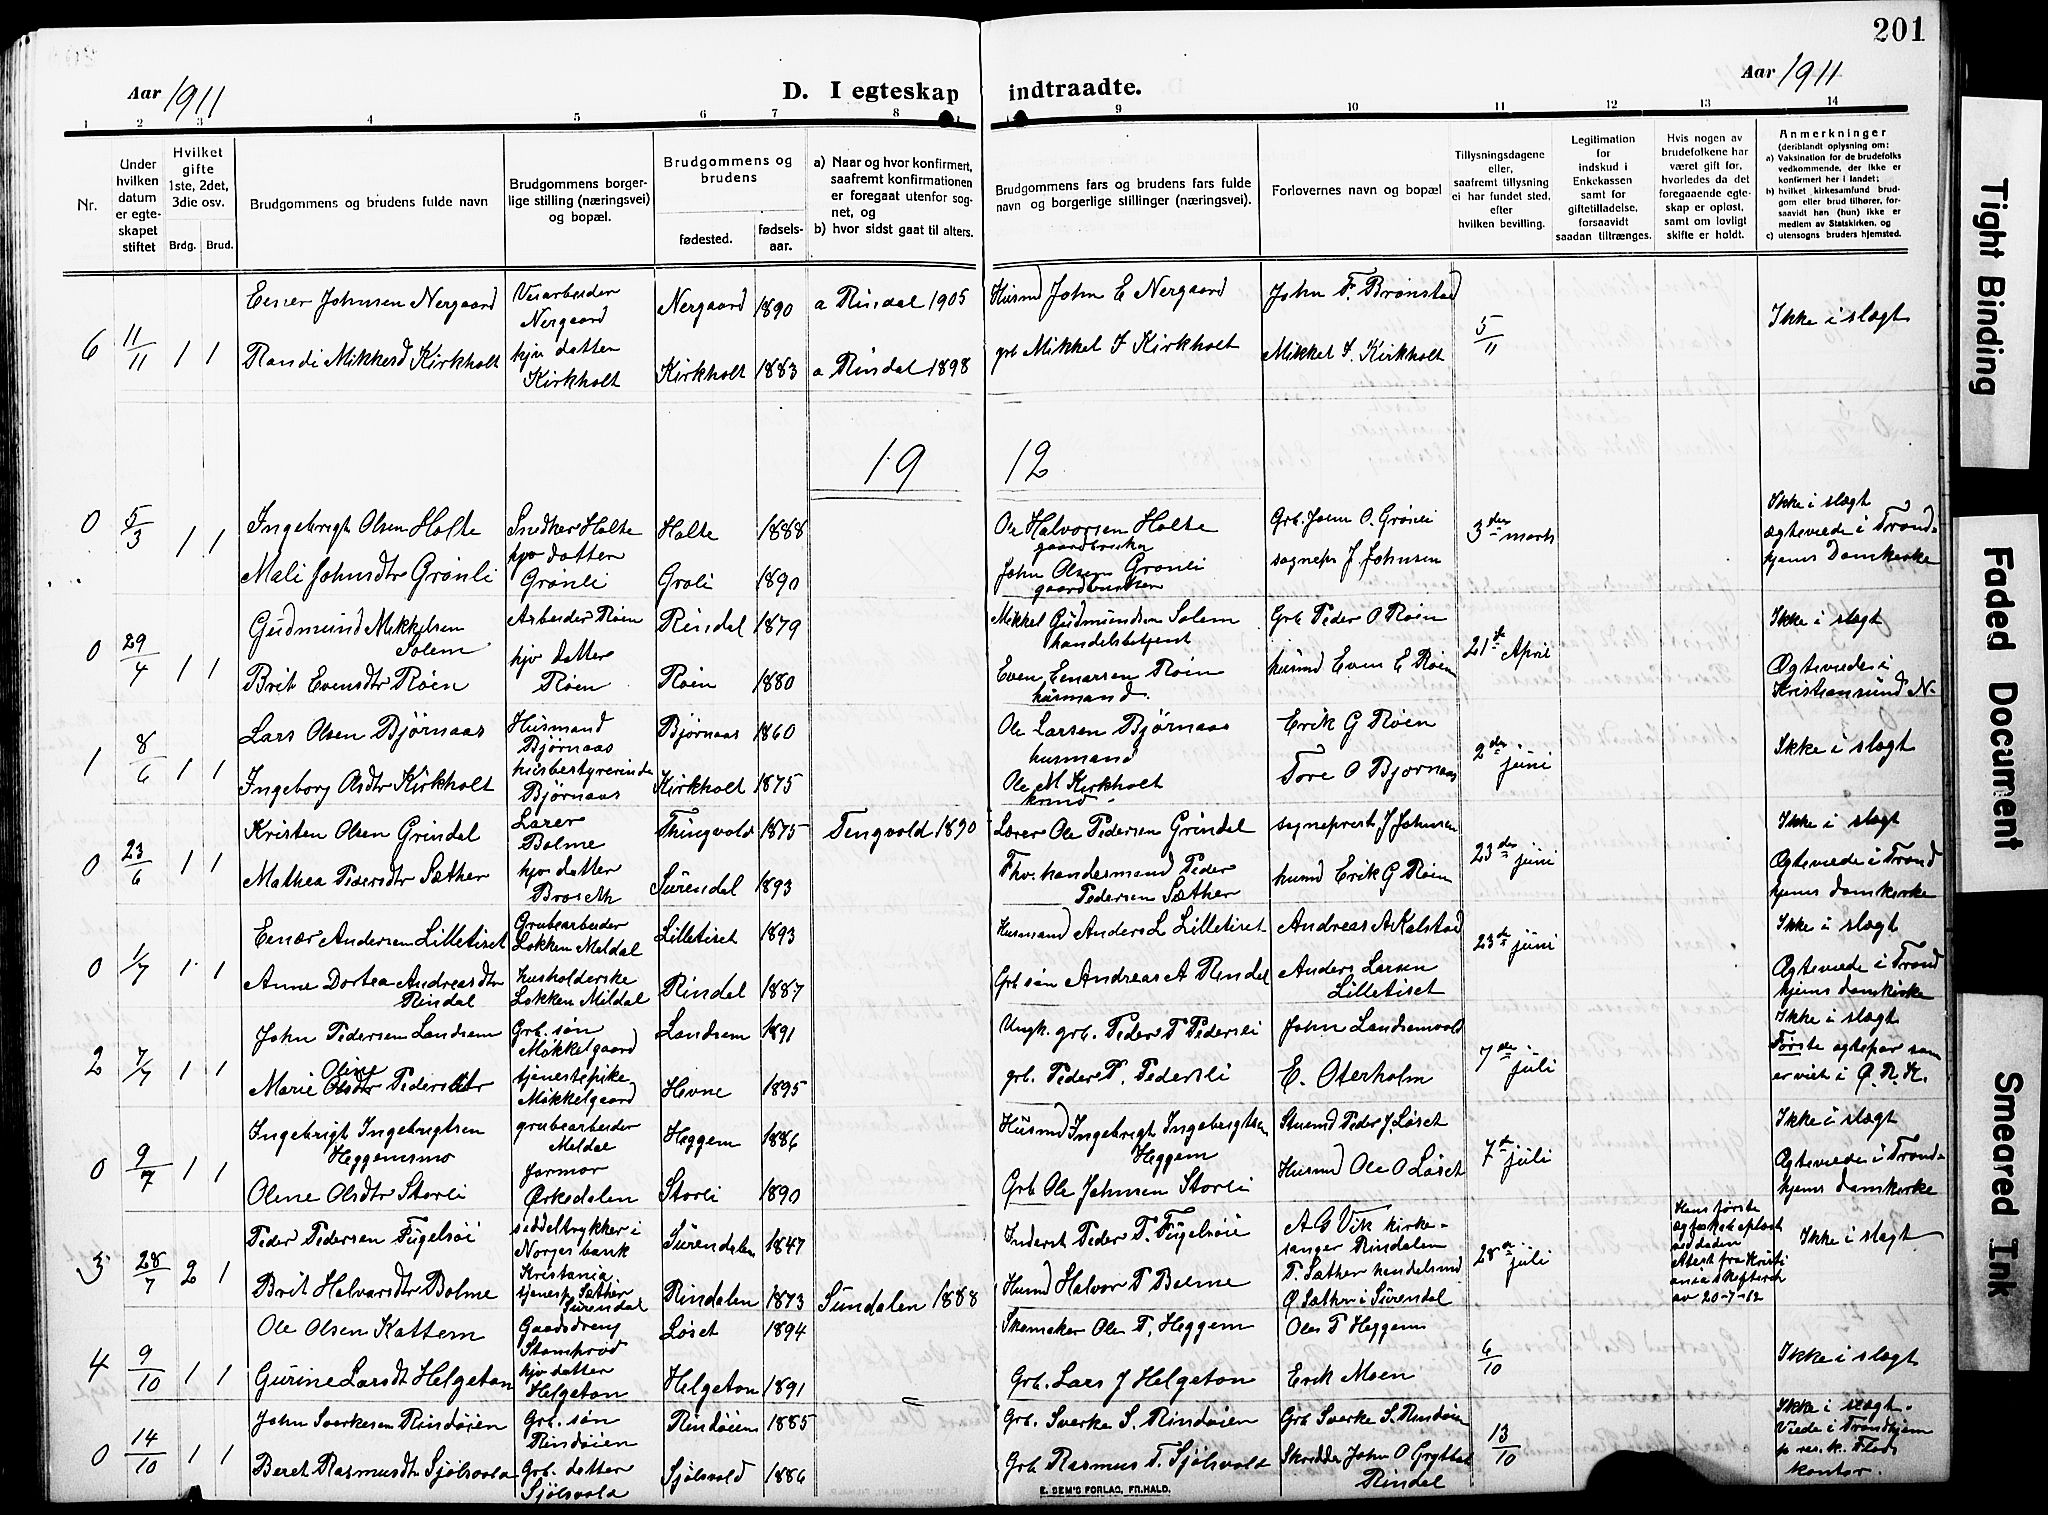 201
Aar 1911
D. I egteskap indtraadte.
Aar 1911
1 2 3 4 5 6 7 8 9 10 11 12 13 14
Nr.
Under hvilken datum er egteskapet stiftet
Hvilket gifte 1ste, 2det, 3die osv.
Brdg. Brud.
Brudgommens og brudens fulde navn
Brudgommens borgerlige stilling (næringsvei) og bopæl.
Brudgommens og brudens
fødested. fødselsaar.
a) Naar og hvor konfirmert, saafremt konfirmationen er foregaat utenfor sognet, og
b) hvor sidst gaat til alters.
Brudgommens fars og brudens fars fulde navn og borgerlige stillinger (næringsvei).
Forlovernes navn og bopæl
Tillysningsdagene eller, saafremt tillysning ei har fundet sted, efter hvilken bevilling.
Legitimation for indskud i Enkekassen samt for giftetilladelse, forsaavidt saadan tiltrænges.
Hvis nogen av brudefolkene har været gift før, hvorledes da det foregaaende egteskap er opløst, samt om lovligt skifte er holdt.
Anmerkninger
(deriblandt oplysning om:
a) Vaksination for de brudefolks vedkommende, der ikke er konfirmert her i landet;
b) hvilket kirkesamfund brudgom eller brud tilhører, forsaavidt han (hun) ikke er medlem av Statskirken, og
c) utensogns bruders hjemsted.
6 11/11 1 1
Einer Johnsen Nergaard Veiarbeider Nergaard Nergaard 1890 a Rindal 1905 Husmd John E Nergaard John F. Brønstad 5/11 Ikke i slægt
Randi Mikkelsd Kirkholt hjv datter Kirkholt Kirkholt 1883 a Rindal 1898 grb Mikkel J Kirkholt Mikkel J. Kirkholt
19 12
0 5/3 1 1
Ingebrigt Olsen Holte Snedker Holte Holte 1888 Ole Halvorsen Holte gaardbruker Grb. John O. Grønli 3die marts Ikke i slægt
Mali Johnsdtr Grønli hjv datter Grønli Groli 1890 John Olsen Grønli gaardbruker sognepr J. Johnsen Ægteviede i Trondhjems Domkirke
0 29/4 1 1
Gudmund Mikkelsen Solem Arbeider Røen Rindal 1879 Mikkel Gudmundsen Solem handelsbetjent Grb Peder O Røen 21de April Ikke i slægt
Brit Evensdtr Røen hjv datter Røen Røen 1880 Even Einarsen Røen husmand. husmd Even E Røen Ægteviedes i Kristiansund N.
1 8/6 1 1
Lars Olsen Bjørnaas Husmand Bjørnaas Bjørnaas 1860 Ole Larsen Bjørnaas husmand Erik G Røen 2den juni Ikke i slægt
Ingeborg Olsdtr Kirkholt husbestyrerinde Bjørnaas Kirkholt 1875 Ole M Kirkholt Tore O Bjørnaas
0 23/6 1 1
Kristen Olsen Grindal Lærer Bolme Thingvold 1875 Tengvold 1890 Lærer Ole Pedersen Grindal sogneprest J Johnsen 23de juni Ikke i slægt
Mathea Pedersdtr Sæther hjv datter Broseth Surendal 1893 Fhv. handesmand Peder Pedersen Sæther husmd Erik G Røen Ægteviede i Trondhjems domkirke
0 1/7 1 1
Einar Andersen Lilletiset Grubearbeider Løkken Meldal Lilletiset 1893 Husmand Anders L Lilletiset Andreas A Kalstad 23de juni Ikke i slægt
Anne Dortea Andreasdtr Rindal husholderske Løkken Meldal Rindal 1887 Grb søn Andreas A Rindal Anders Larsen Lilletiset Ægteviede i Trondhjems domkirke
2 7/7 1 1
John Pedersen Landsem Grb. søn Møkkelgaard Landsem 1891 Ungk. grb. Peder P Pedersli John Landsemvold 7de juli Ikke i slægt
Marie Oline Olsdtr Pedersdtr tjenestepike Møkkelgaard Hevne 1895 grb. Peder P. Pedersli E. Oterholm Første egtepar som er viet i Ø. R. K.
0 9/7 1 1
Ingebrigt Ingebrigtsen Heggemsmo grubearbeider Meldal Heggem 1886 Husmd Ingebrigt Ingebrigtsen Heggem Peder J. Løset 7de juli Ikke i slægt
Olene Olsdtr Storli Jarmor Ørkedalen Storli 1890 Grb Ole Johnsen Storli Husmd Ole O Løset Ægteviede i Trondhjems domkirke
3 28/7 2 1
Peder Pedersen Fugelsøi seddeltrykker i Norges bank Kristania Surendalen 1847 Inderst Peder P. Fugelsøi A G Vik kirkesanger Rindalen 28de juli Hans første egteskap opløst ved døden Attest fra Kristiania skifteret av 20-7-12 Ikke i slægt
Brit Halvorsdtr Bolme tjenesp. Sæther Surendal Rindalen 1873 Sundalen 1888 Husmd Halvor P Bolme P. Sæther handelsmd Ø Sæther i Surendal
4 9/10 1 1
Ole Olsen Kattem Gaadsdreng Stomprød Løset 1894 Skomaker Ole P. Heggem Ole P Heggem 6/10 Ikke i slægt
Gurine Larsdt Helgeton hjv datter Helgeton Helgeton 1891 Grb. Lars J Helgeton Erik Moen
0 14/10 1 1
John Sverkesen Rindøien Grb. søn Rindøien Rindøien 1885 Grb. Sverke S. Rindøien Grb Sverke S. Rindøien 13/10 Ikke i slægt.
Beret Rasmusdtr Sjølsvold Grb. datter Sjølsvold Sjølsvold 1886 Grb Rasmus T. Sjølsvold Skredder John O Gryttet Rindal Viede i Trondhjem kontor.
E. SEM'S FORLAG, FR.HALD.
Tight Binding
Faded Document
Smeared Ink